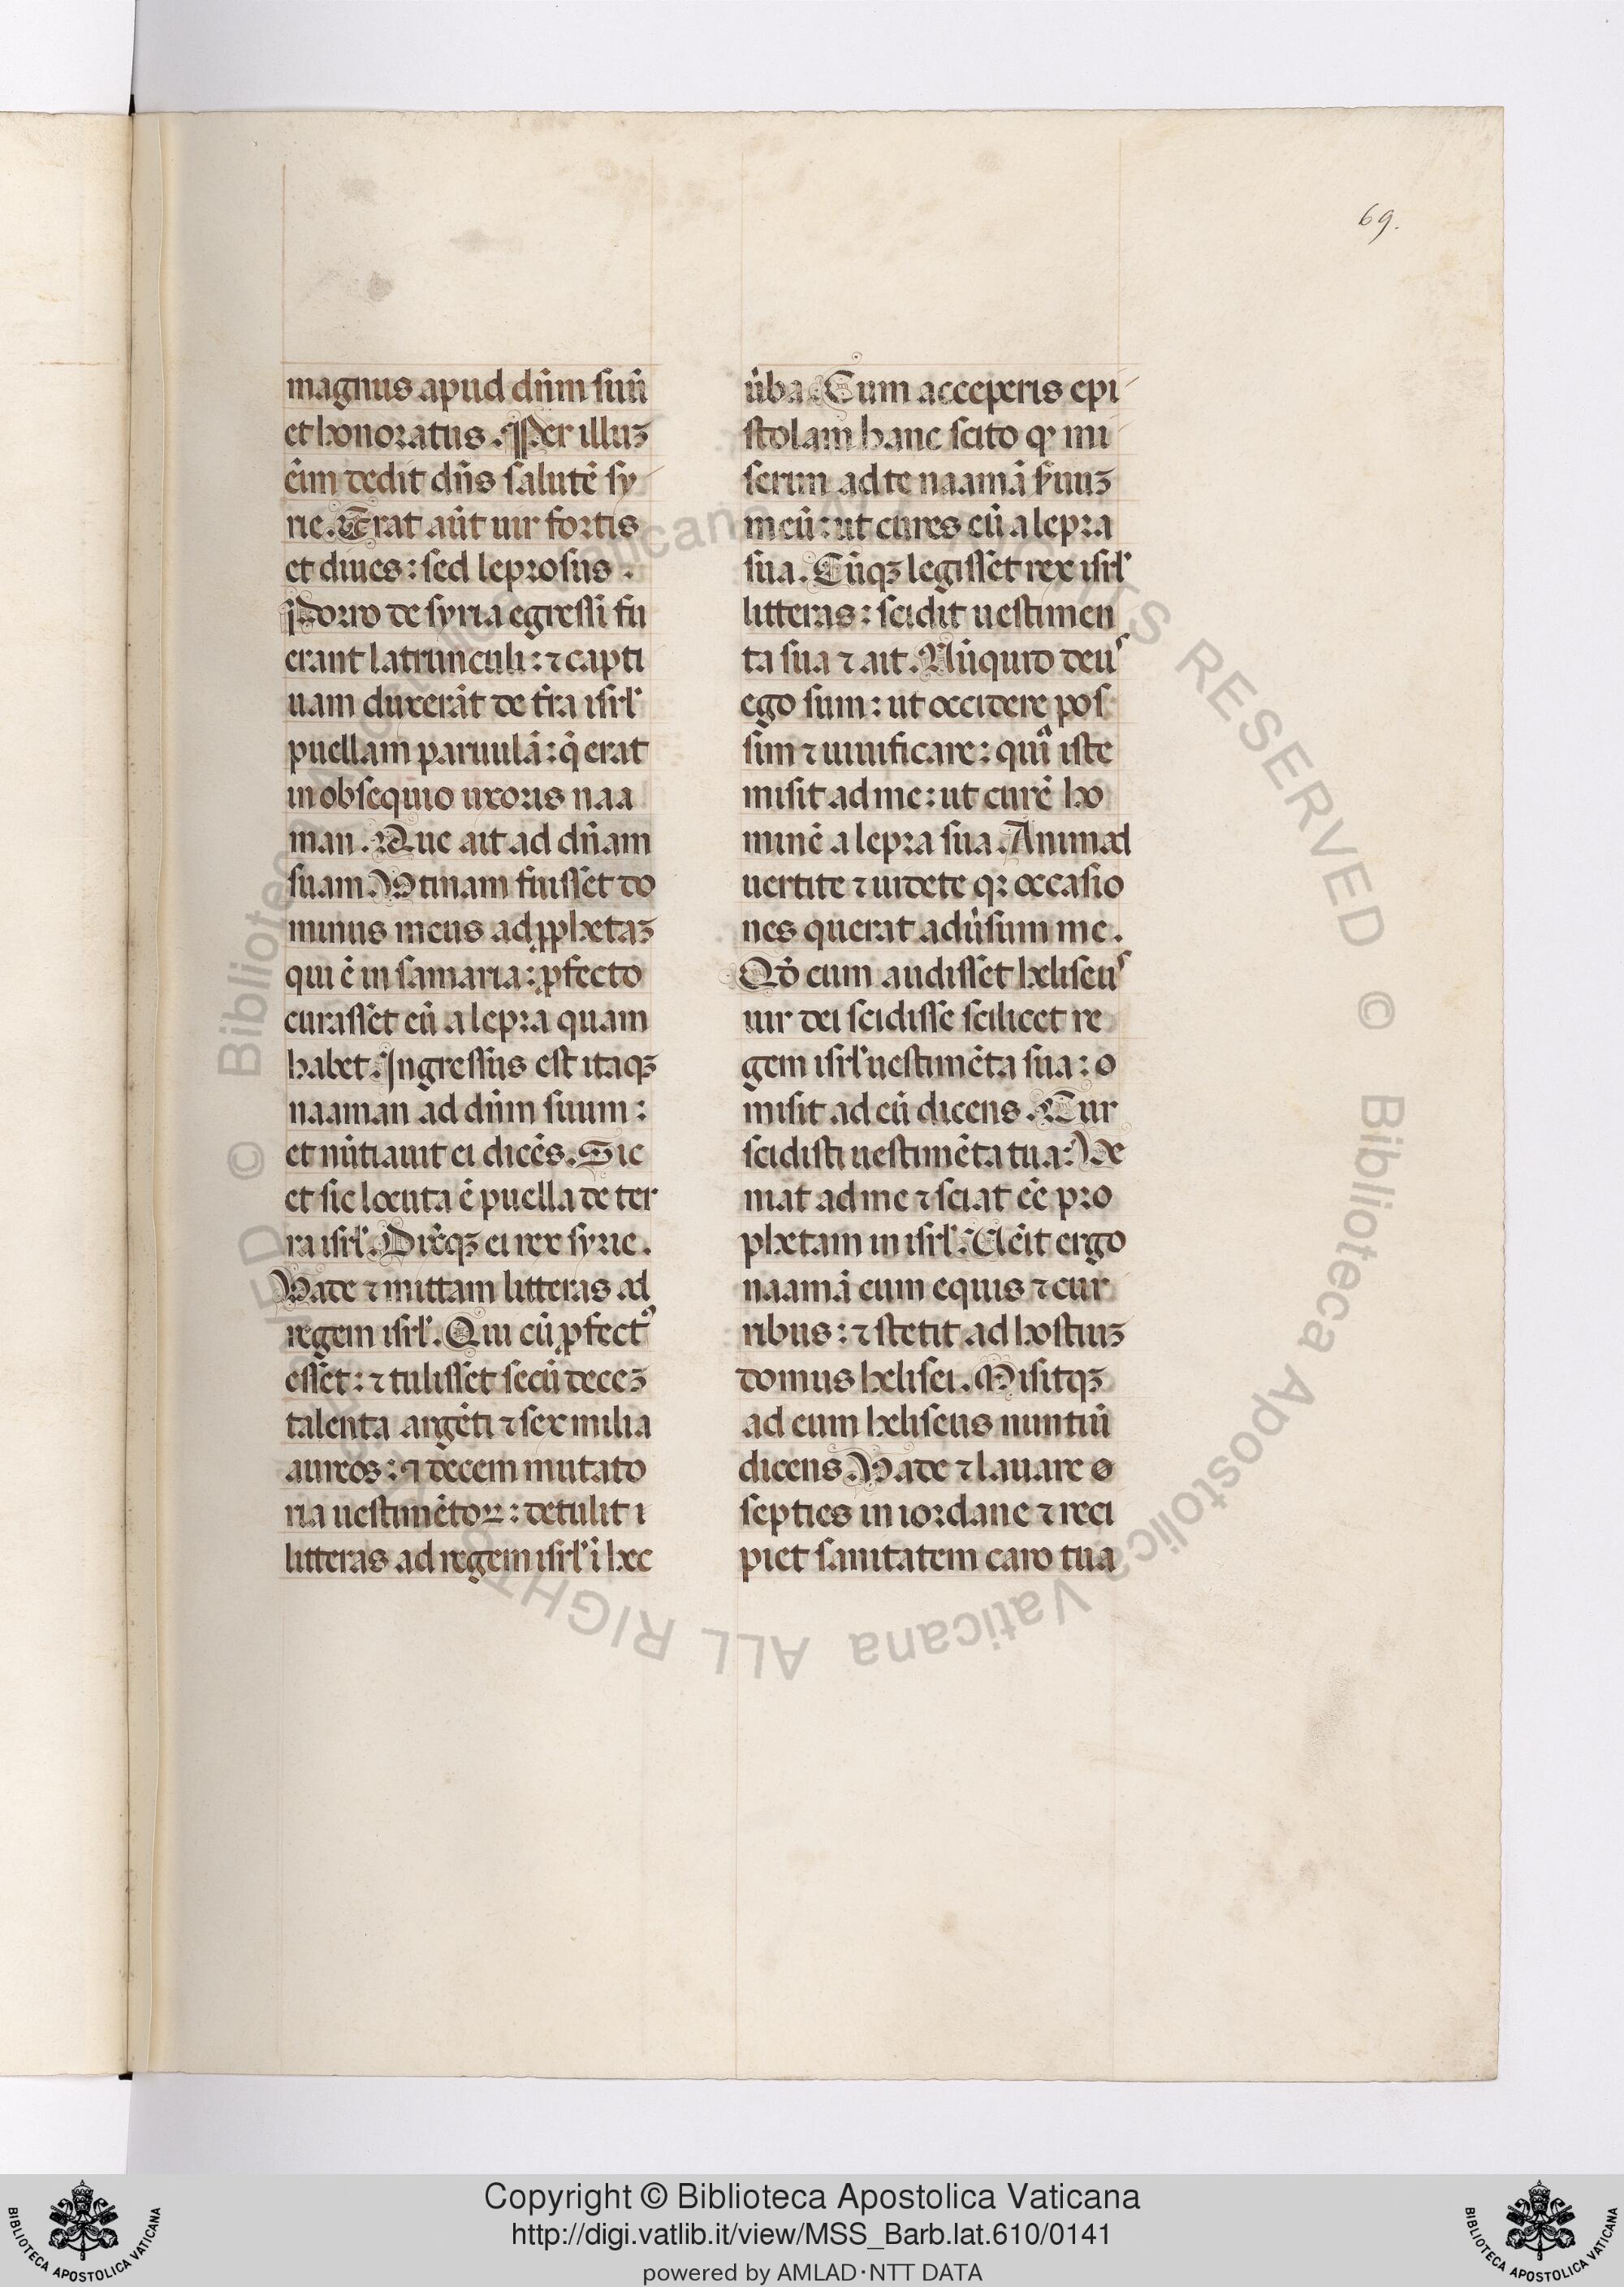 69.
magnus apud dn̄m suū
et honoratus. Per illuꝫ
eīm dedit dn̄s salutē sy
rie. Erat aūt uir fortis
et diues: sed leprosus.
Porro de syria egressi fu
erant latrunculi: ⁊ capti
uam duxerāt de t̄ra isrl̄
puellam paruulā: q̄ erat
in obsequio uxoris naa
man. Que ait ad dn̄am
suam. Vtinam fuisset do
minus meus ad ꝓphetaꝫ
qui ē in samaria: ꝓfecto
curasset eū a lepra quam
habet. Ingressus est itaqꝫ
naaman ad dn̄m suum:
et nūtiauit ei dicēs. Sic
et sic locuta ē puella de ter
ra isrl̄. Dixᷓqꝫ ei rex syrie.
Vade ⁊ mittam litteras ad
regem isrl̄. Qui cū ꝓfectꝰ
esset: ⁊ tulisset secū deceꝫ
talenta argēti ⁊ sex milia
aureos: ⁊ decem mutato
ria uestimētoꝝ: detulit
litteras ad regem isrl̄ ī hec
ūba. Cum acceperis epi
stolam hanc scito ꝙ mi
serim ad te naamā s̄uuꝫ
meū: ut cures eū a lepra
sua. Cūqꝫ legisset rex isrl̄
litteras: scidit uestimen
ta sua ⁊ ait. Nūquid deus
ego sum: ut occidere pos
sim ⁊ uiuificare: quiᷓ iste
misit ad me: ut curē ho
minē a lepra sua. Animad
uertite ⁊ uidete qꝫ occasio
nes querat adūsum me.
Qd̄ cum audisset heliseus
uir dei scidisse scilicet re
gem isrl̄ uestimēta sua:
misit ad eū dicens. Cur
scidisti uestimēta tua: Ve
niat ad me ⁊ sciat eē pro
phetam in isrl̄. Uēit ergo
naamā cum equis ⁊ cur
ribus: ⁊ stetit ad hostiuꝫ
domus helisei. Misitqꝫ
ad eum heliseus nuntiū
dicens. Vade ⁊ lauare
septies in iordane ⁊ reci
piet sanitatem caro tua
© Biblioteca Apostolica Vaticana ALL RIGHTS RESERVED
Copyright © Biblioteca Apostolica Vaticana
http://digi.vatlib.it/view/MSS_Barb.lat.610/0141
powered by AMLAD·NTT DATA
BIBLIOTECA APOSTOLICA VATICANA
BIBLIOTECA APOSTOLICA VATICANA